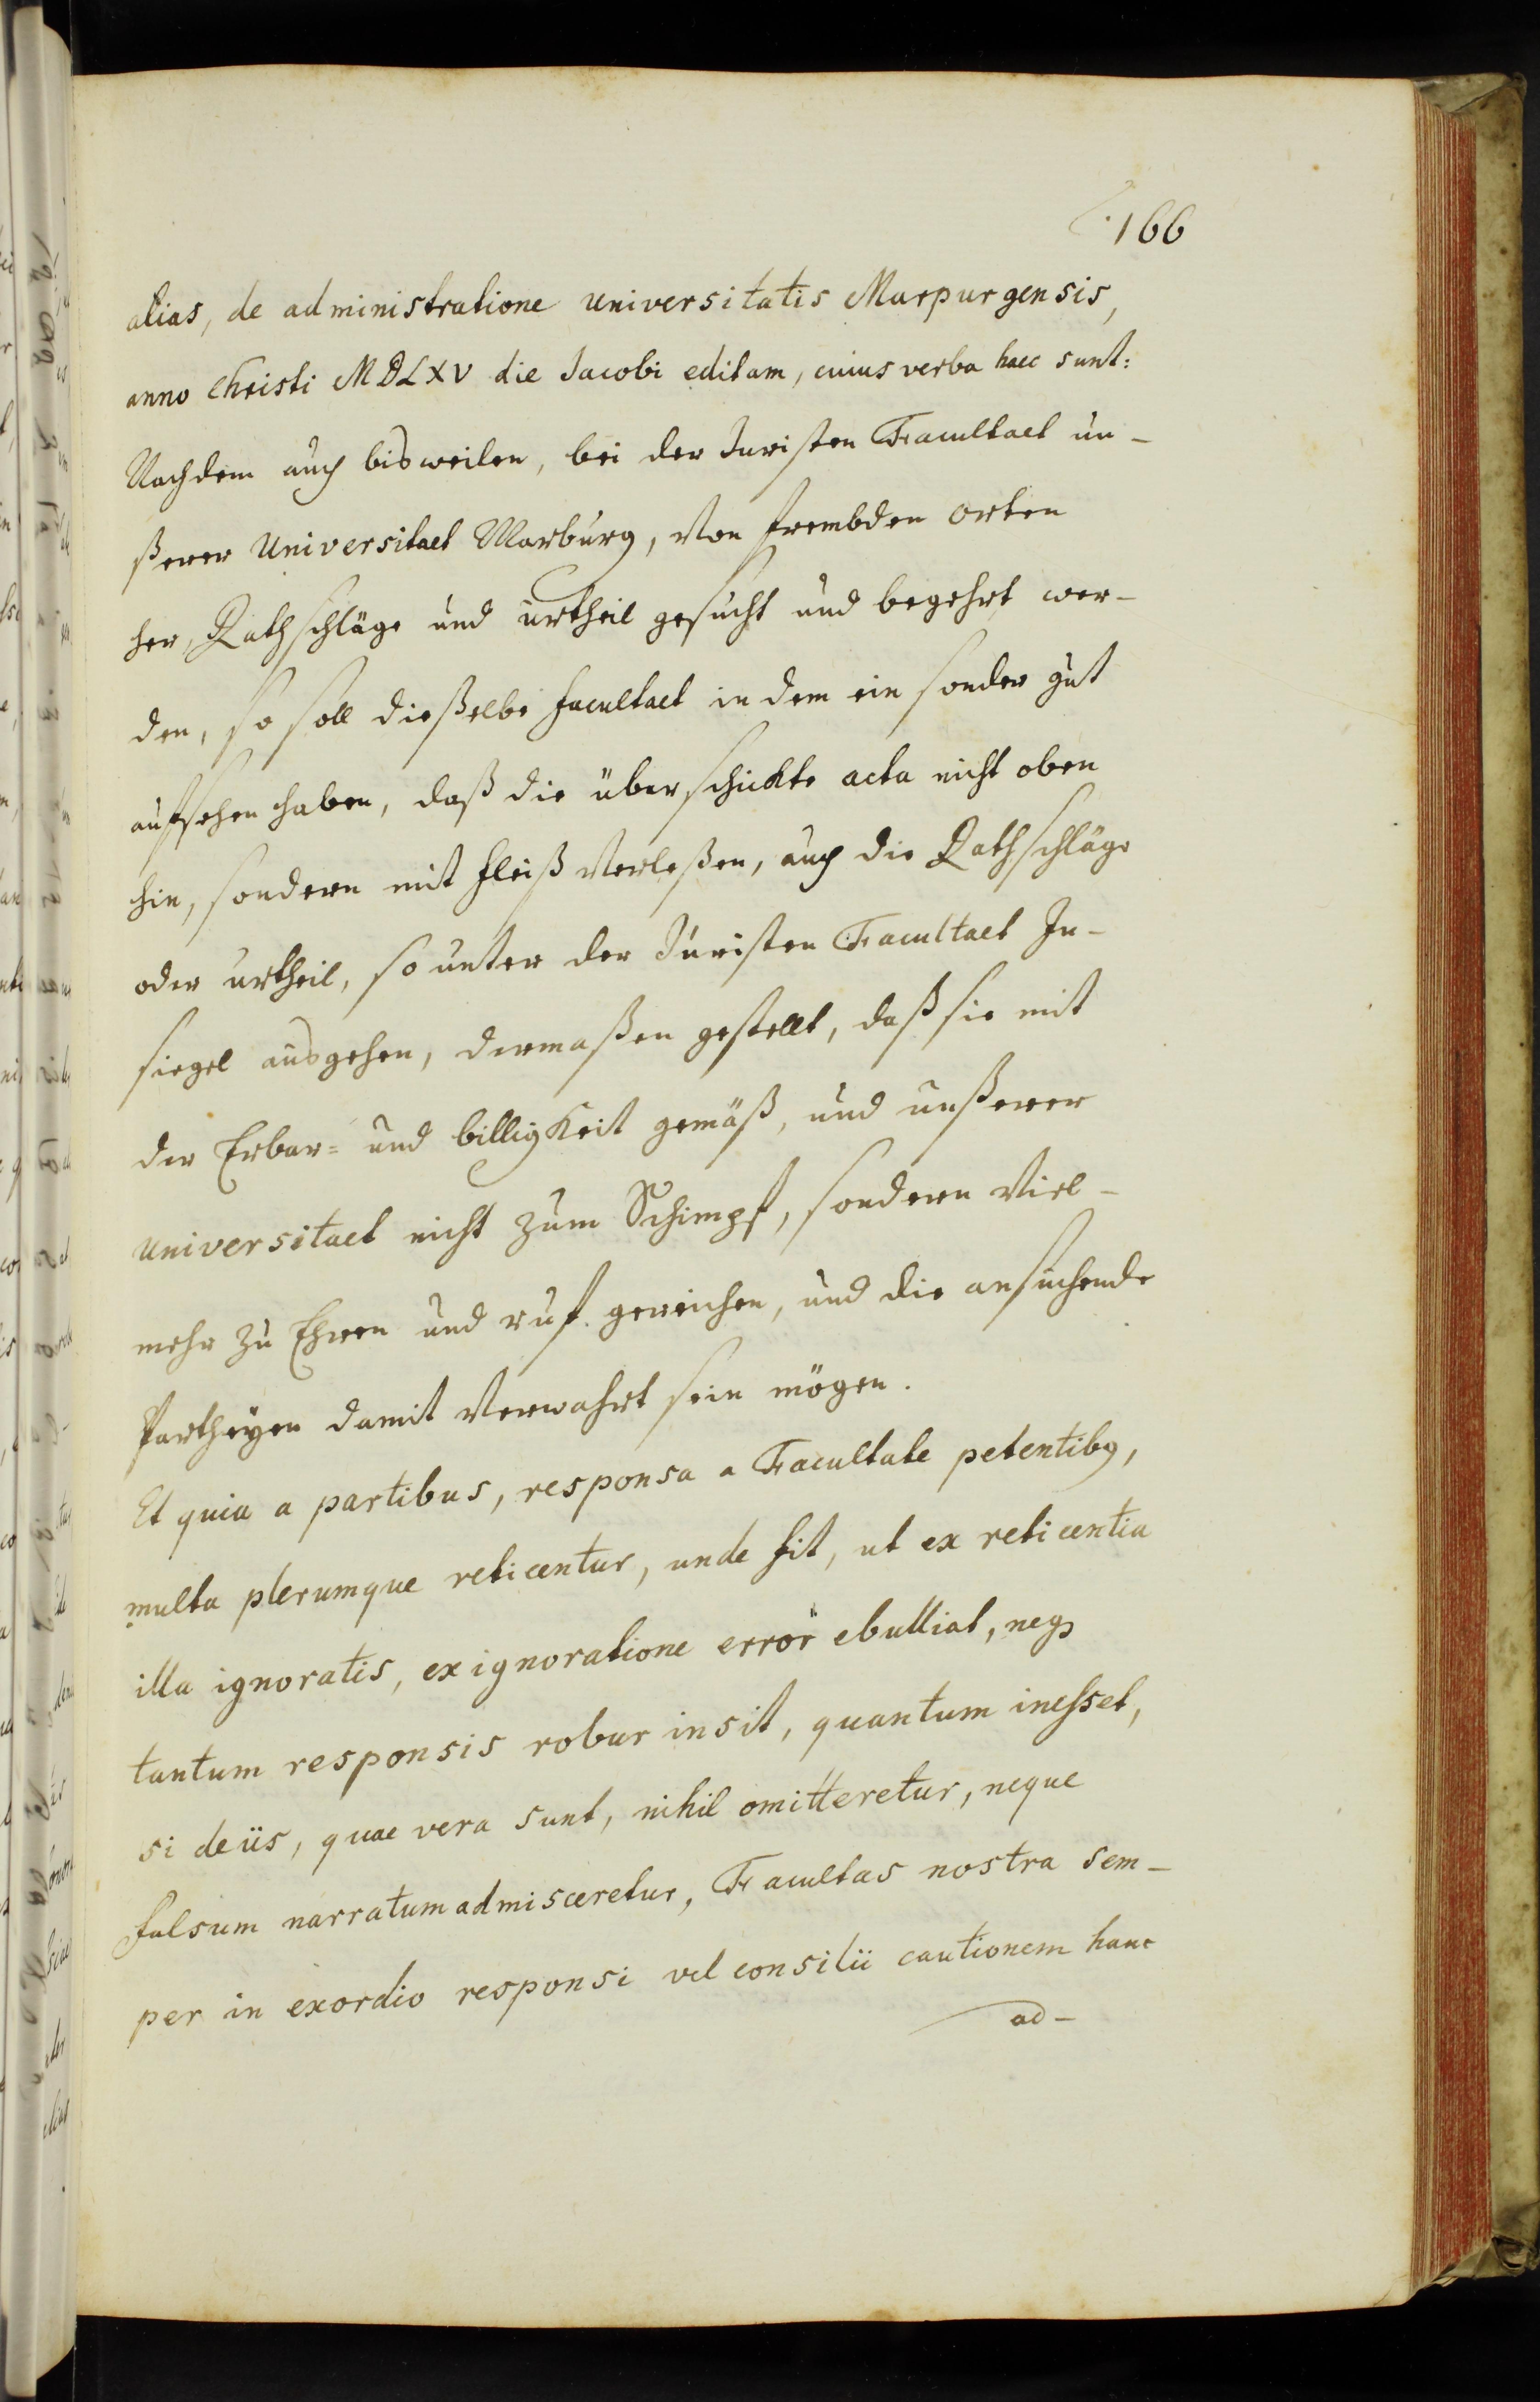 166
alias, de administratione universitatis Marpurgensis,
anno Christi MDLXV die Jacobi editam, cuius verba haec sunt:
Nachdem auch bisweilen, bei der Juristen Facultaet un-
ßerer Universitaet Marburg, von frembden orten
her, Rathschläge und urtheil gesucht und begehrt wer-
den, so soll dießelbe facultaet in dem ein sonder gut
aufsehen haben, daß die überschickte acta nicht oben
hin, sondern mit fleiß verleßen, auch die Rathschläge
oder urtheil, so unter der Juristen Facultaet In-
siegel ausgehen, dermaßen gestellt, daß sie mit
der Erbar= und billigkeit gemäß, und unßerer
universitaet nicht zum Schimpf, sondern viel-
mehr zu Ehren und ruf gereichen, und die ansuchende
Partheyen damit verwahrt sein mögen.
Et quia a partibus, responsa a Facultate petentibꝰ,
multa plerumque reticentur, unde fit, ut ex reticentia
illa ignoratis, ex ignoratione error ebulliat, neqꝫ
tantum responsis robur insit, quantum inesset,
si de iis, quae vera sunt, nihil omitteretur, neque
falsum narratum admisceretur, Facultas nostra sem-
per in exordio responsi vel consilii cautionem hanc
ad-